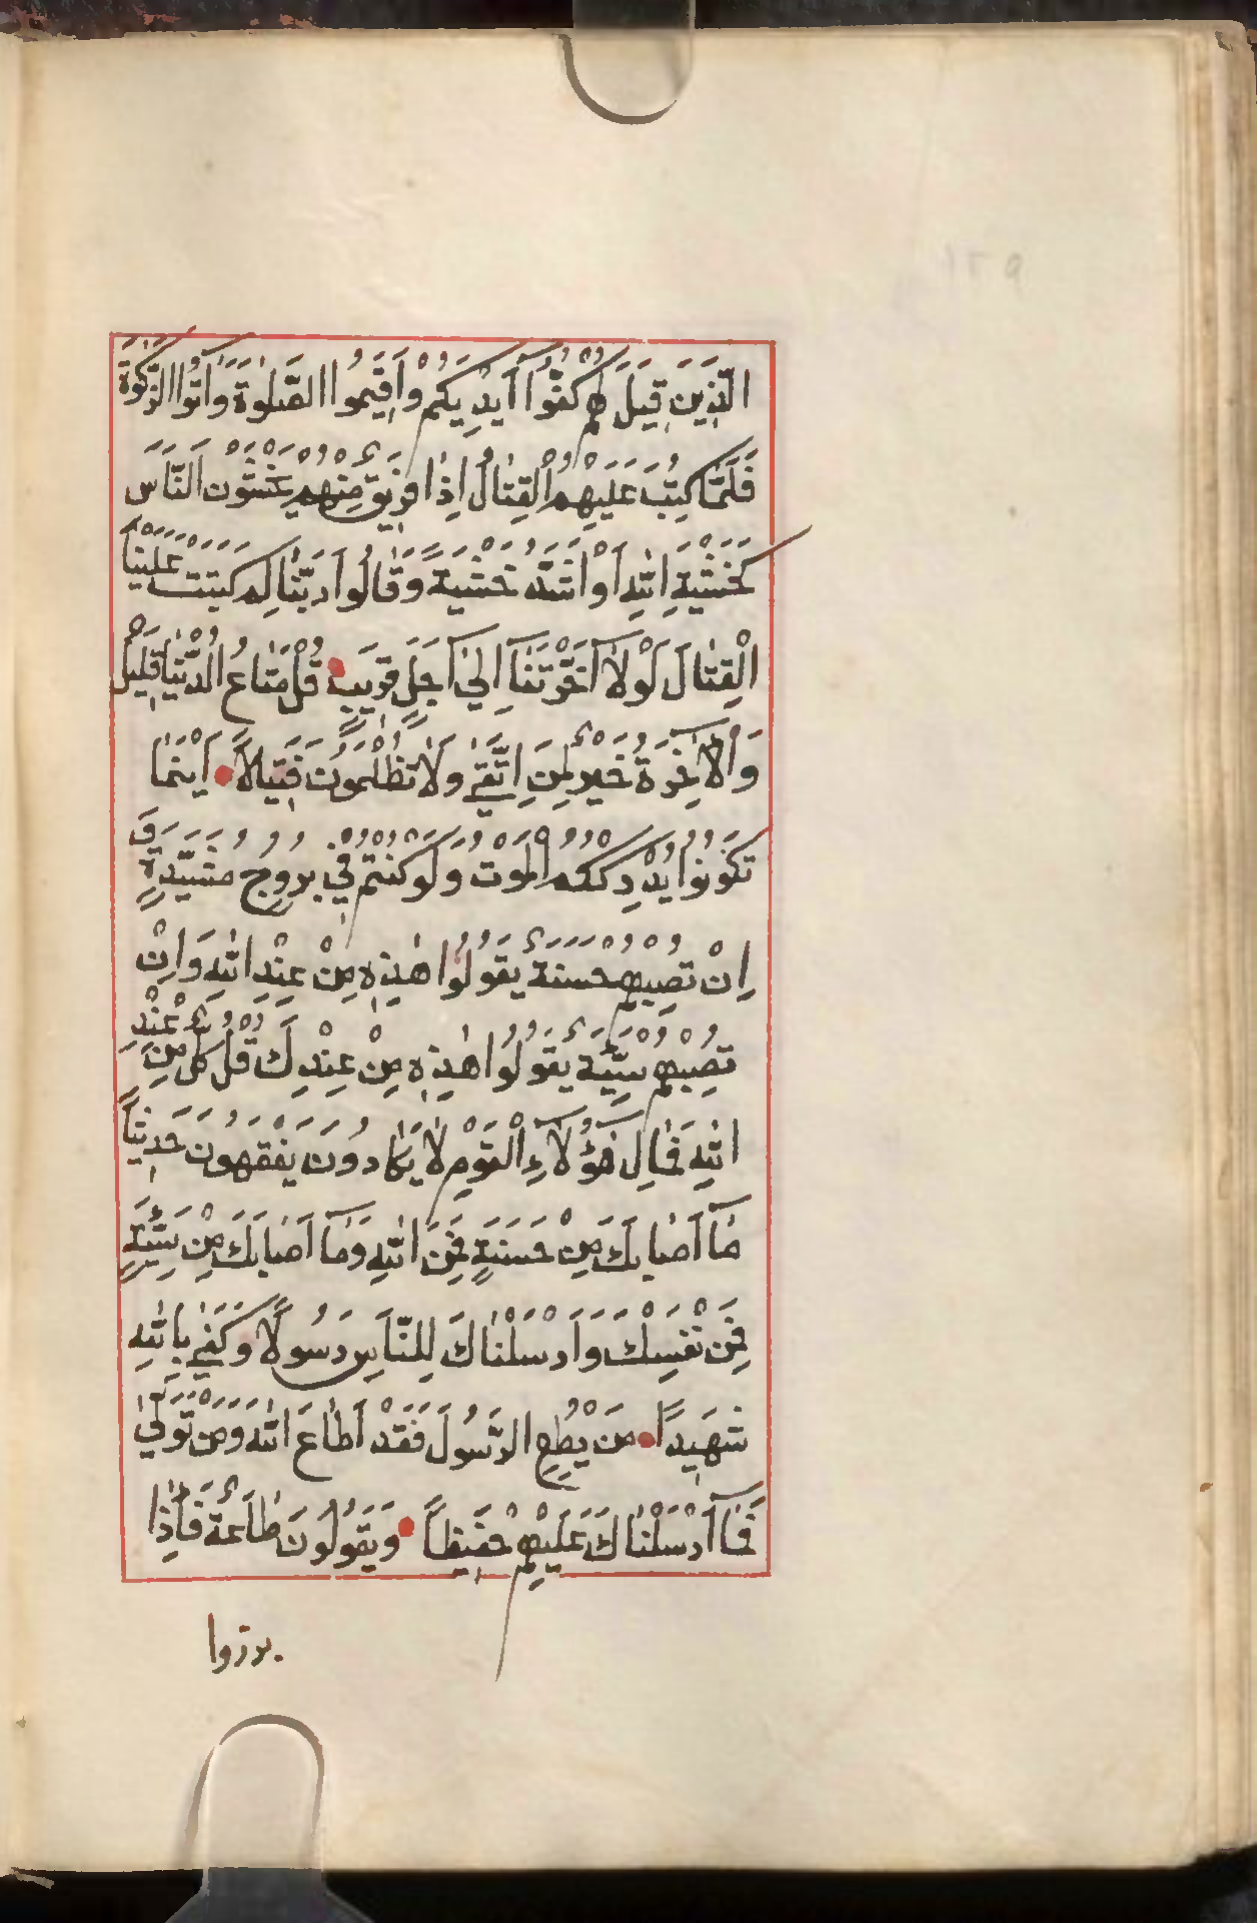 ١٢٩
الَّذِينَ قِيلَ لَهُمْ كُفُّوا أَيْدِيَكُمْ وَأَقِيمُوا الصَّلٰوةَ وَآتُوا الزَّكٰوةَ
فَلَمَّا كُتِبَ عَلَيْهِمُ الْقِتَالُ إِذَا فَرِيقٌ مِنْهُمْ يَخْشَوْنَ النَّاسَ
كَخَشْيَةِ اللّٰهِ أَوْ أَشَدَّ خَشْيَةً وَقَالُوا رَبَّنَا لِمَ كَتَبْتَ عَلَيْنَا
الْقِتَالَ لَوْلَا أَخَّرْتَنَا إِلَى أَجَلٍ قَرِيبٍ قُلْ مَتَاعُ الدُّنْيَا قَلِيلٌ
وَالْآخِرَةُ خَيْرٌ لِمَنِ اتَّقَى وَلَا تُظْلَمُونَ فَتِيلًا أَيْنَمَا
تَكُونُوا يُدْرِكْكُمُ الْمَوْتُ وَلَوْ كُنْتُمْ فِي بُرُوجٍ مُشَيَّدَةٍ
إِنْ تُصِبْهُمْ حَسَنَةٌ يَقُولُوا هٰذِهِ مِنْ عِنْدِ اللّٰهِ وَإِنْ
تُصِبْهُمْ سَيِّئَةٌ يَقُولُوا هٰذِهِ مِنْ عِنْدِكَ قُلْ كُلٌّ مِنْ عِنْدِ
اللّٰهِ فَمَالِ هٰؤُلَاءِ الْقَوْمِ لَا يَكَادُونَ يَفْقَهُونَ حَدِيثًا
مَا أَصَابَكَ مِنْ حَسَنَةٍ فَمِنَ اللّٰهِ وَمَا أَصَابَكَ مِنْ سَيِّئَةٍ
فَمِنْ نَفْسِكَ وَأَرْسَلْنَاكَ لِلنَّاسِ رَسُولًا وَكَفَى بِاللّٰهِ
شَهِيدًا مَنْ يُطِعِ الرَّسُولَ فَقَدْ أَطَاعَ اللّٰهَ وَمَنْ تَوَلَّى
فَمَا أَرْسَلْنَاكَ عَلَيْهِمْ حَفِيظًا وَيَقُولُونَ طَاعَةٌ فَإِذَا
برزوا